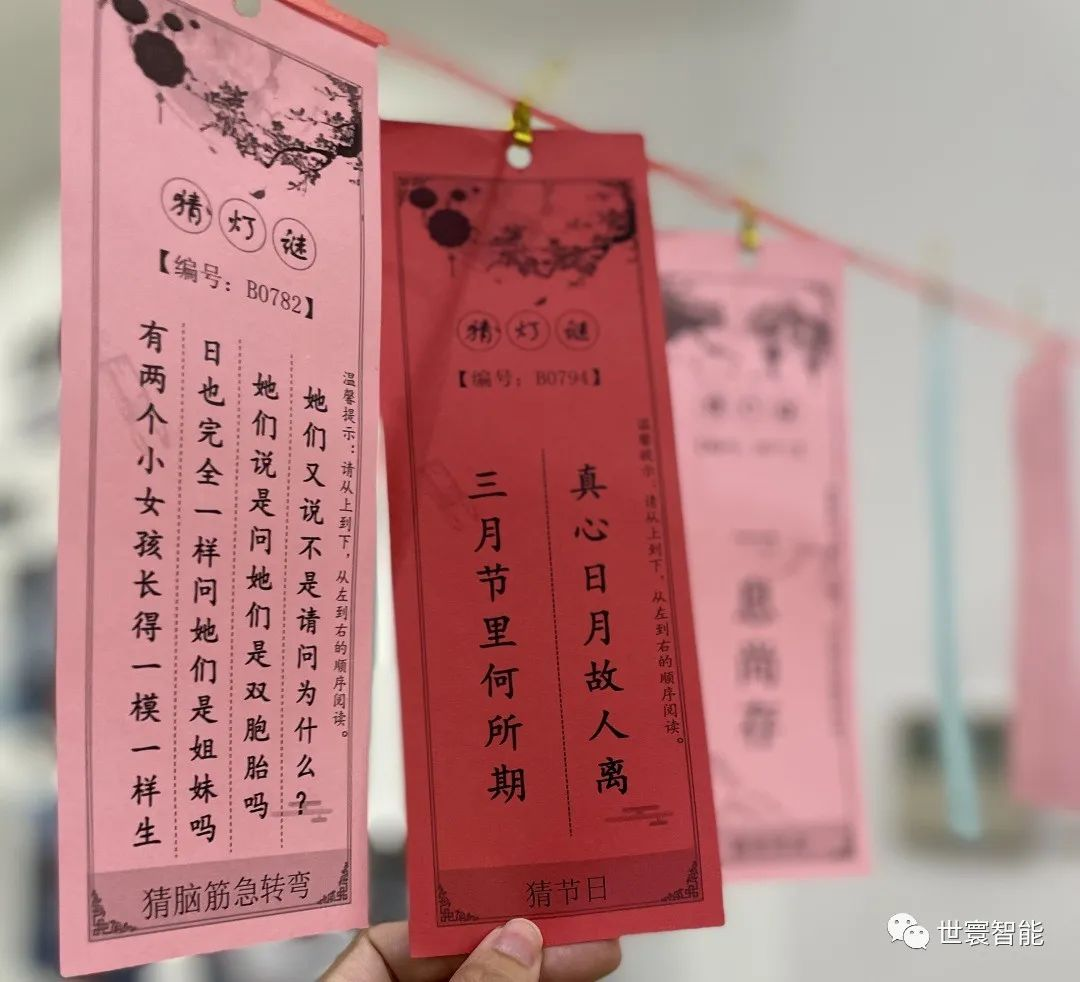 猜灯谜
【编号：B0782】
有两个小女孩长得一模一样生
日也完全一样问她们是姐妹吗
她们说是问她们是双胞胎吗
她们又说不是请问为什么？
温馨提示：请从上到下，从左到右的顺序阅读。
猜脑筋急转弯
猜灯谜
【编号：B0794】
三月节里何所期
真心日月故人离
温馨提示：请从上到下，从左到右的顺序阅读。
猜节日
一息尚存
世寰智能